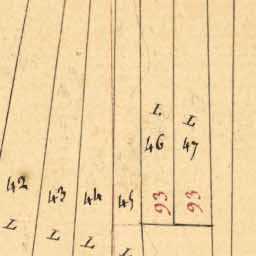 L. L
46 47
42 43 44 45 93 93
L L L L